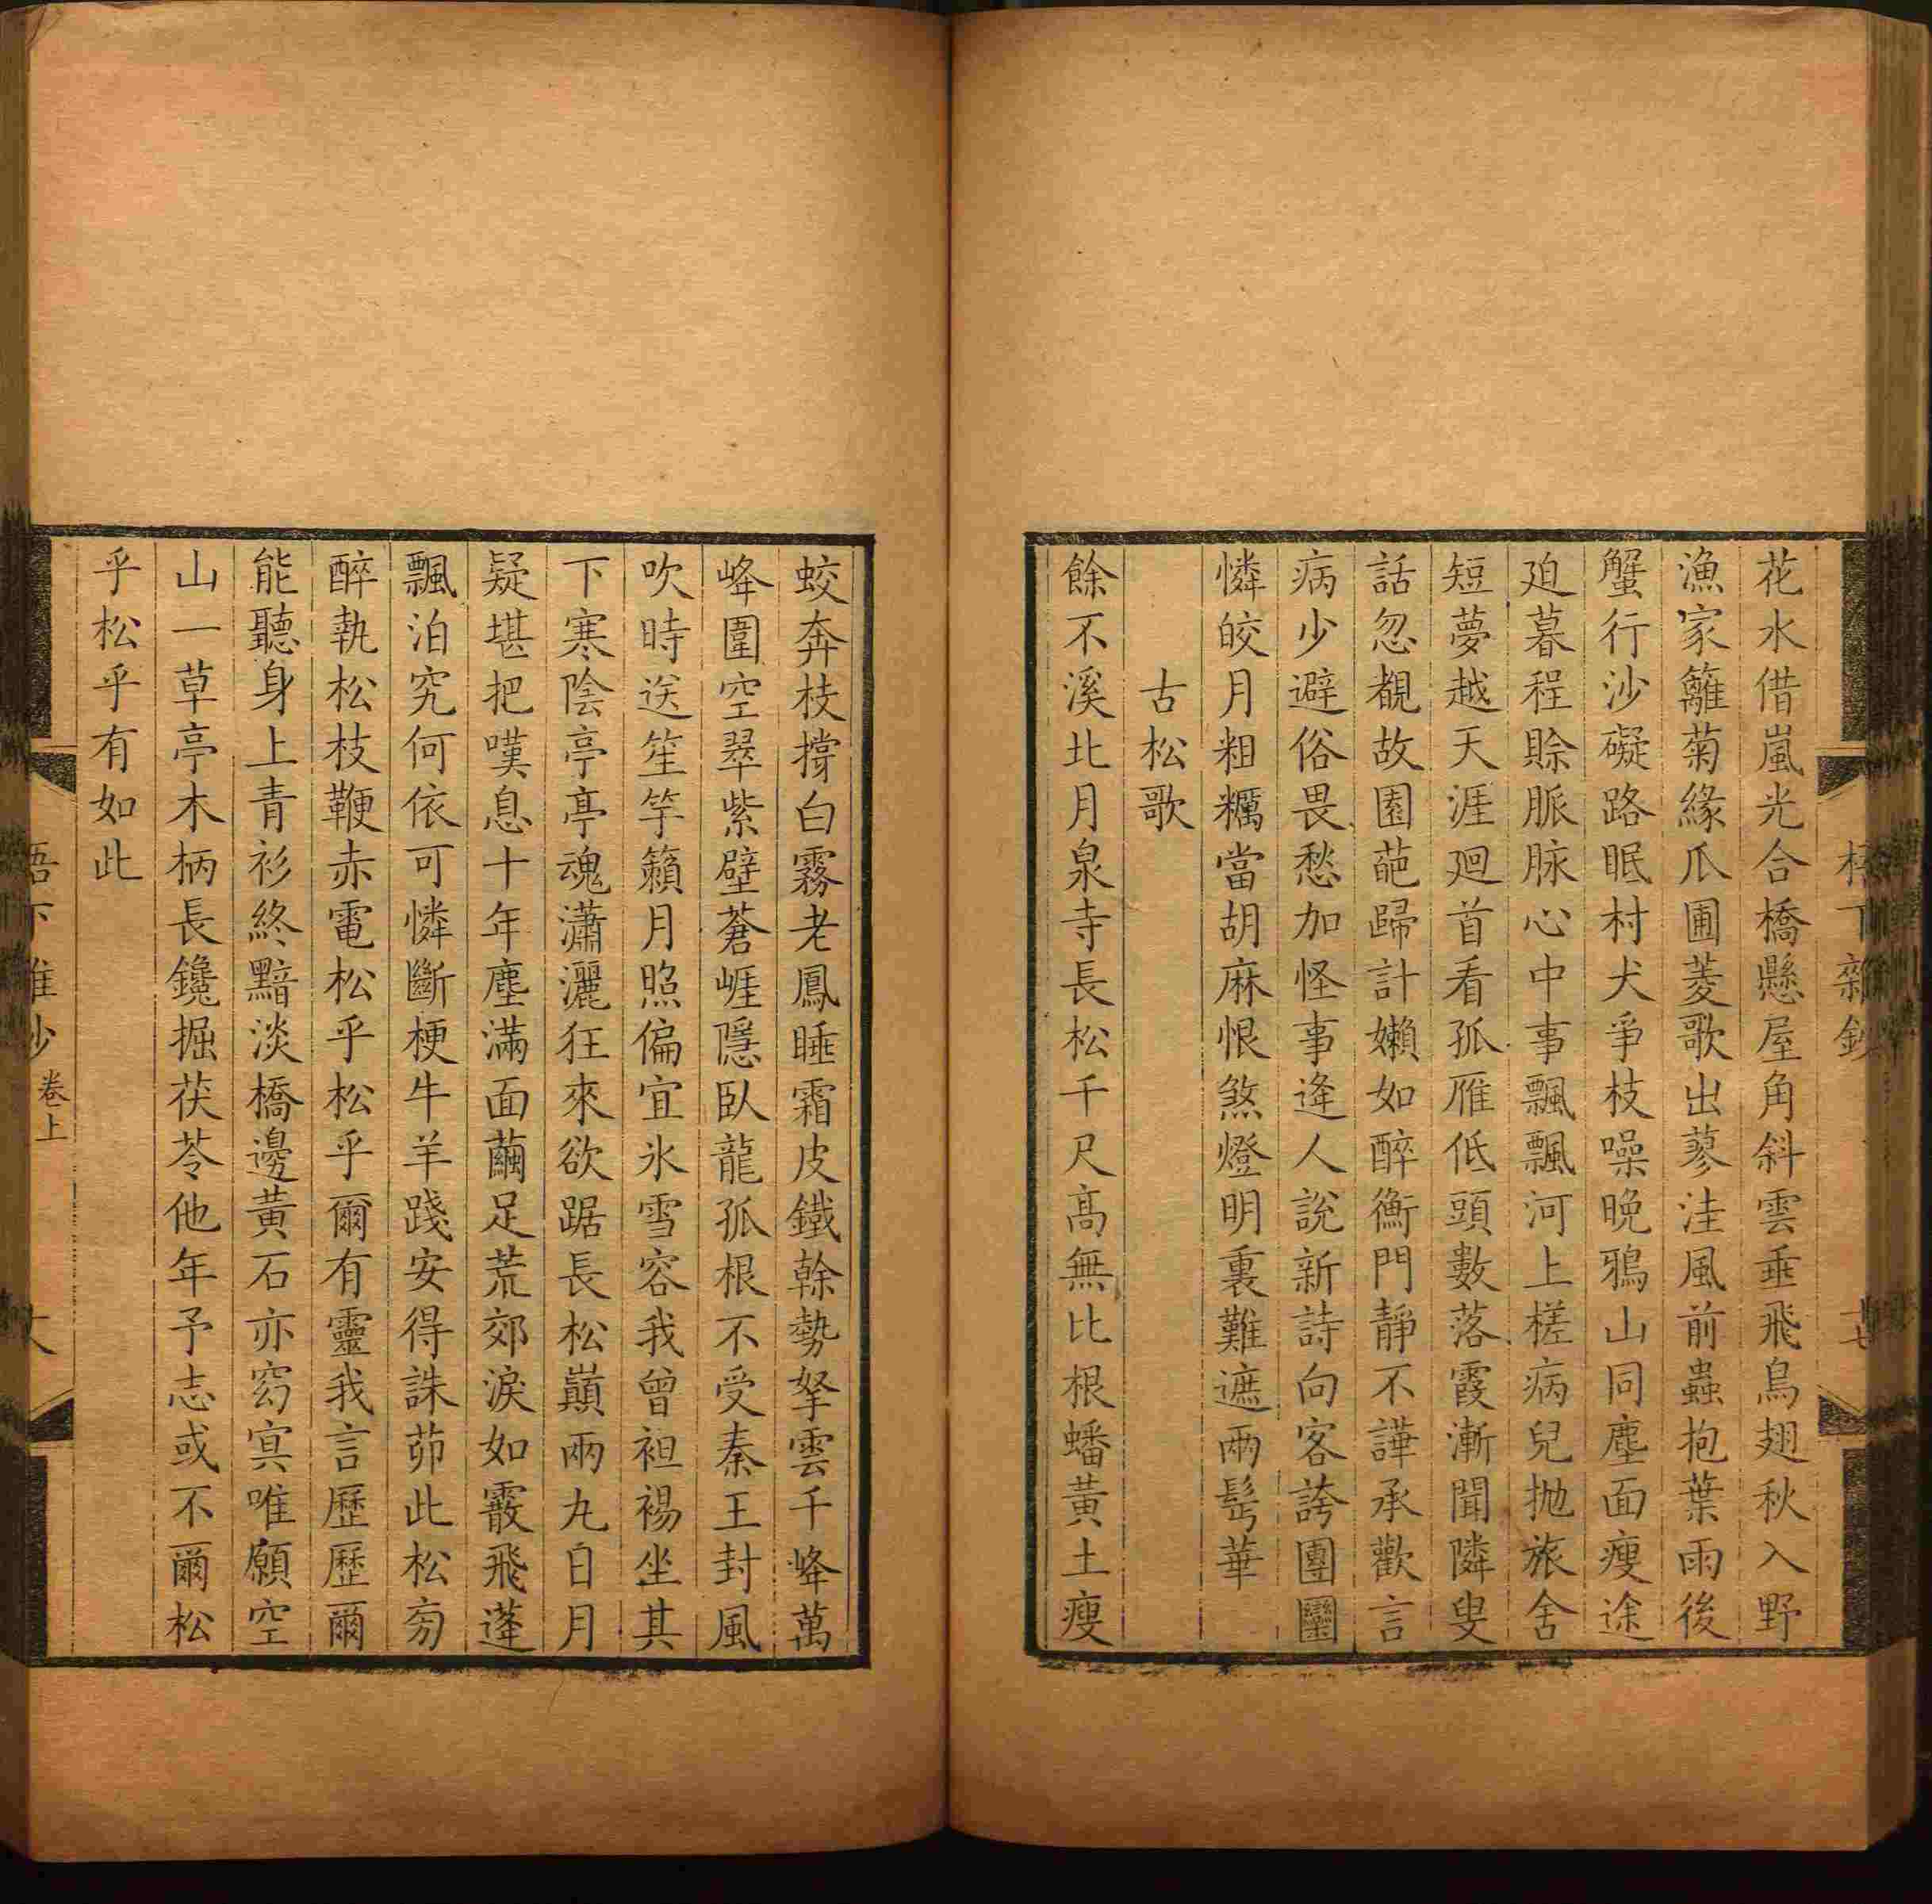 花水借嵐光合橋懸屋角斜雲垂飛鳥翅秋入野
漁家籬菊緣瓜圃菱歌出蓼洼風前蟲抱葉雨後
蟹行沙礙路眠村犬爭枝噪晚鴉山同塵面瘦途
迫暮程賒脈脉心中事飄飄河上槎病兒拋旅舍
短夢越天涯廻首看孤雁低頭數落霞漸聞隣叟
話忽覩故園葩歸計嬾如醉衡門靜不譁承歡言
病少避俗畏愁加怪事逢人說新詩向客誇團圞
憐皎月粗糲當胡麻恨煞燈明裏難遮兩髩華
古松歌
餘不溪北月泉寺長松千尺高無比根蟠黃土瘦
蛟奔枝撐白霧老鳳睡霜皮鐵榦勢拏雲千峰萬
峰圍空翠紫壁蒼崕隱臥龍孤根不受秦王封風
吹時送笙竽籟月照偏宜氷雪容我曾袒裼坐其
下寒陰亭亭魂瀟灑狂來欲踞長松巔兩丸日月
疑堪把嘆息十年塵滿面繭足荒郊淚如霰飛蓬
飄泊究何依可憐斷梗牛羊踐安得誅茆此松旁
醉執松枝鞭赤電松乎松乎爾有靈我言歷歷爾
能聽身上青衫終黯淡橋邊黃石亦窈冥唯願空
山一草亭木柄長鑱掘茯苓他年予志或不爾松
乎松乎有如此
卷上